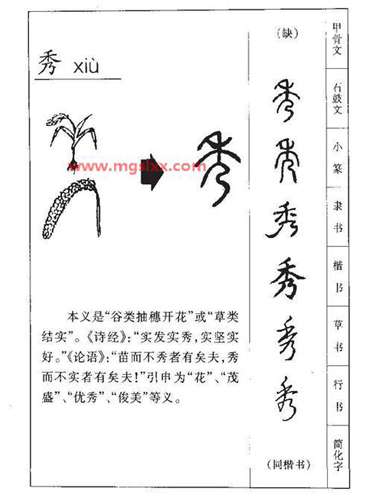 秀 xiù
www.mgslxx.com
秀
本义是“谷类抽穗开花”或“草类
结实”。《诗经》：“实发实秀，实坚实
好。”《论语》：“苗而不秀者有矣夫，秀
而不实者有矣夫！”引申为“花”、“茂
盛”、“优秀”、“俊美”等义。
（缺）
秀
秀
秀
秀
秀
秀
（同楷书）
甲骨文
石鼓文
小篆
隶书
楷书
草书
行书
简化字